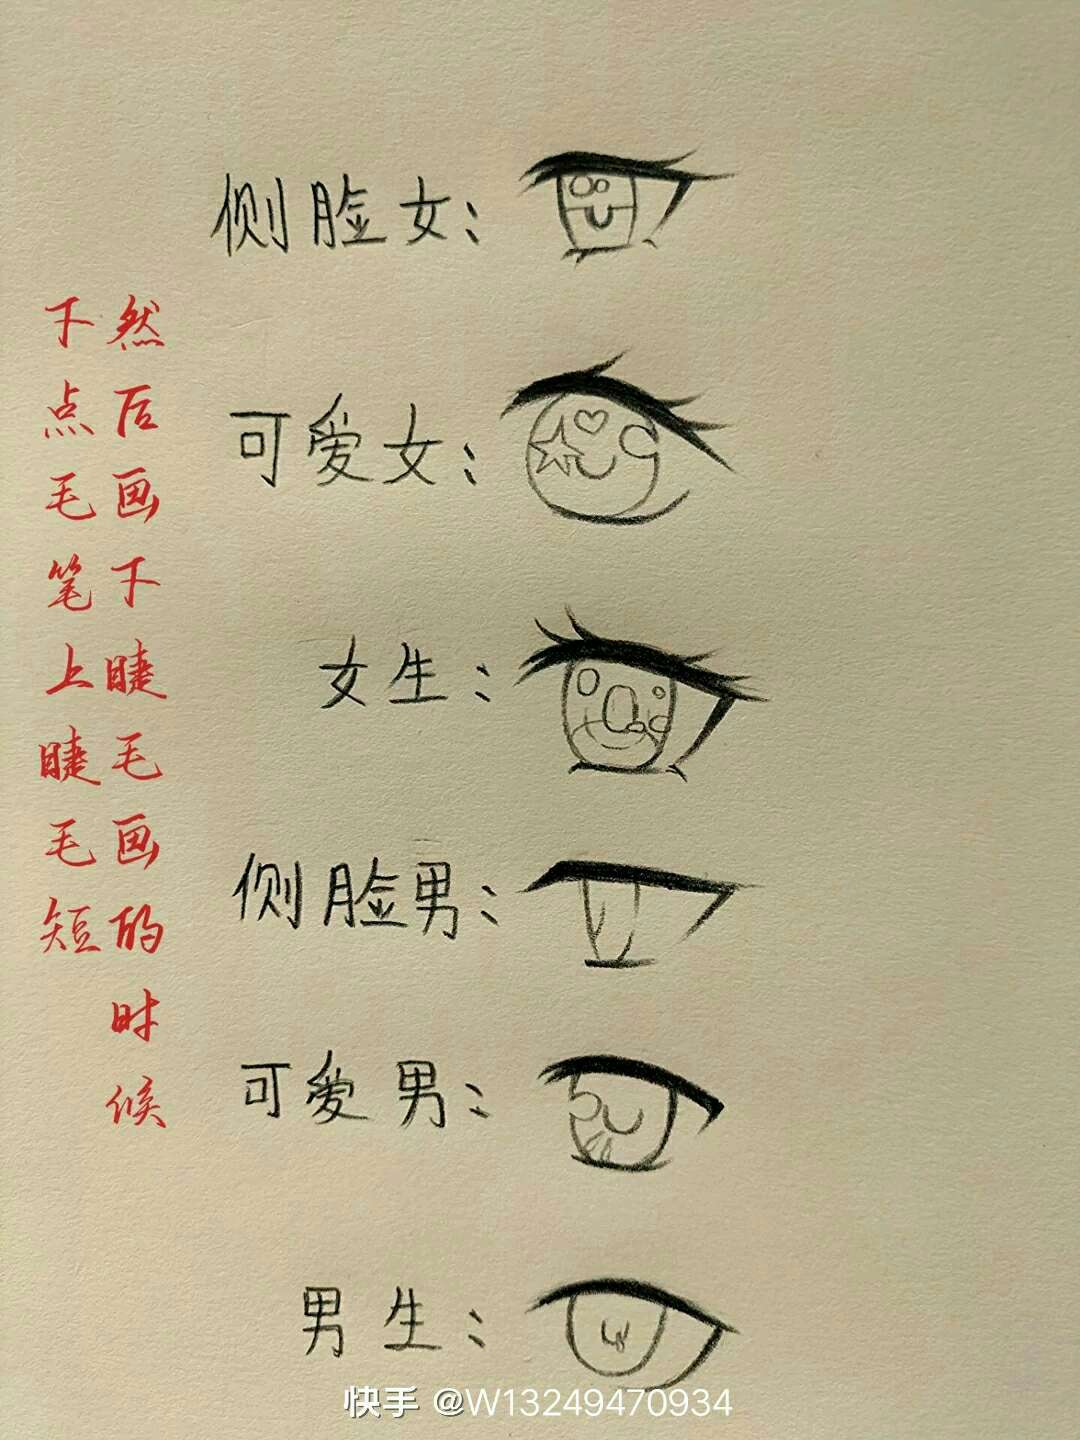 侧脸女：
可爱女：
女生：
侧脸男：
可爱男：
男生：
然后画下睫毛画的时候
下点毛笔上睫毛短
快手 @W13249470934